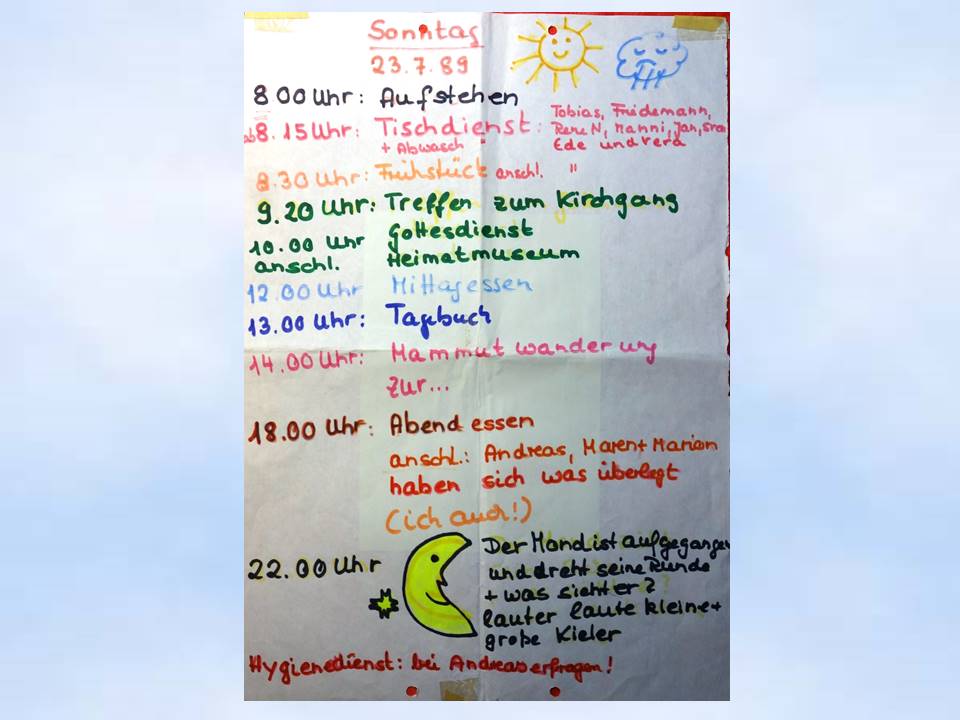 Sonntag
23.7.89
8 00 Uhr: Aufstehen
ab 8.15 Uhr: Tischdienst: Tobias, Friedemann,
+ Abwasch " Rene N, Manni, Jan,
Ede und Vera
8.30 Uhr: Frühstück anschl. "
9.20 Uhr: Treffen zum Kirchgang
10.00 Uhr Gottesdienst
anschl. Heimatmuseum
12.00 Uhr Mittagessen
13.00 Uhr: Tagebuch
14.00 Uhr: Mammutwanderung
zur...
18.00 Uhr: Abendessen
anschl.: Andreas, Maren + Marion
haben sich was überlegt
(ich auch!)
22.00 Uhr Der Mond ist aufgegangen
und dreht seine Runde
+ was sieht er?
lauter laute kleine +
große Kieler
Hygienedienst: bei Andreas erfragen!